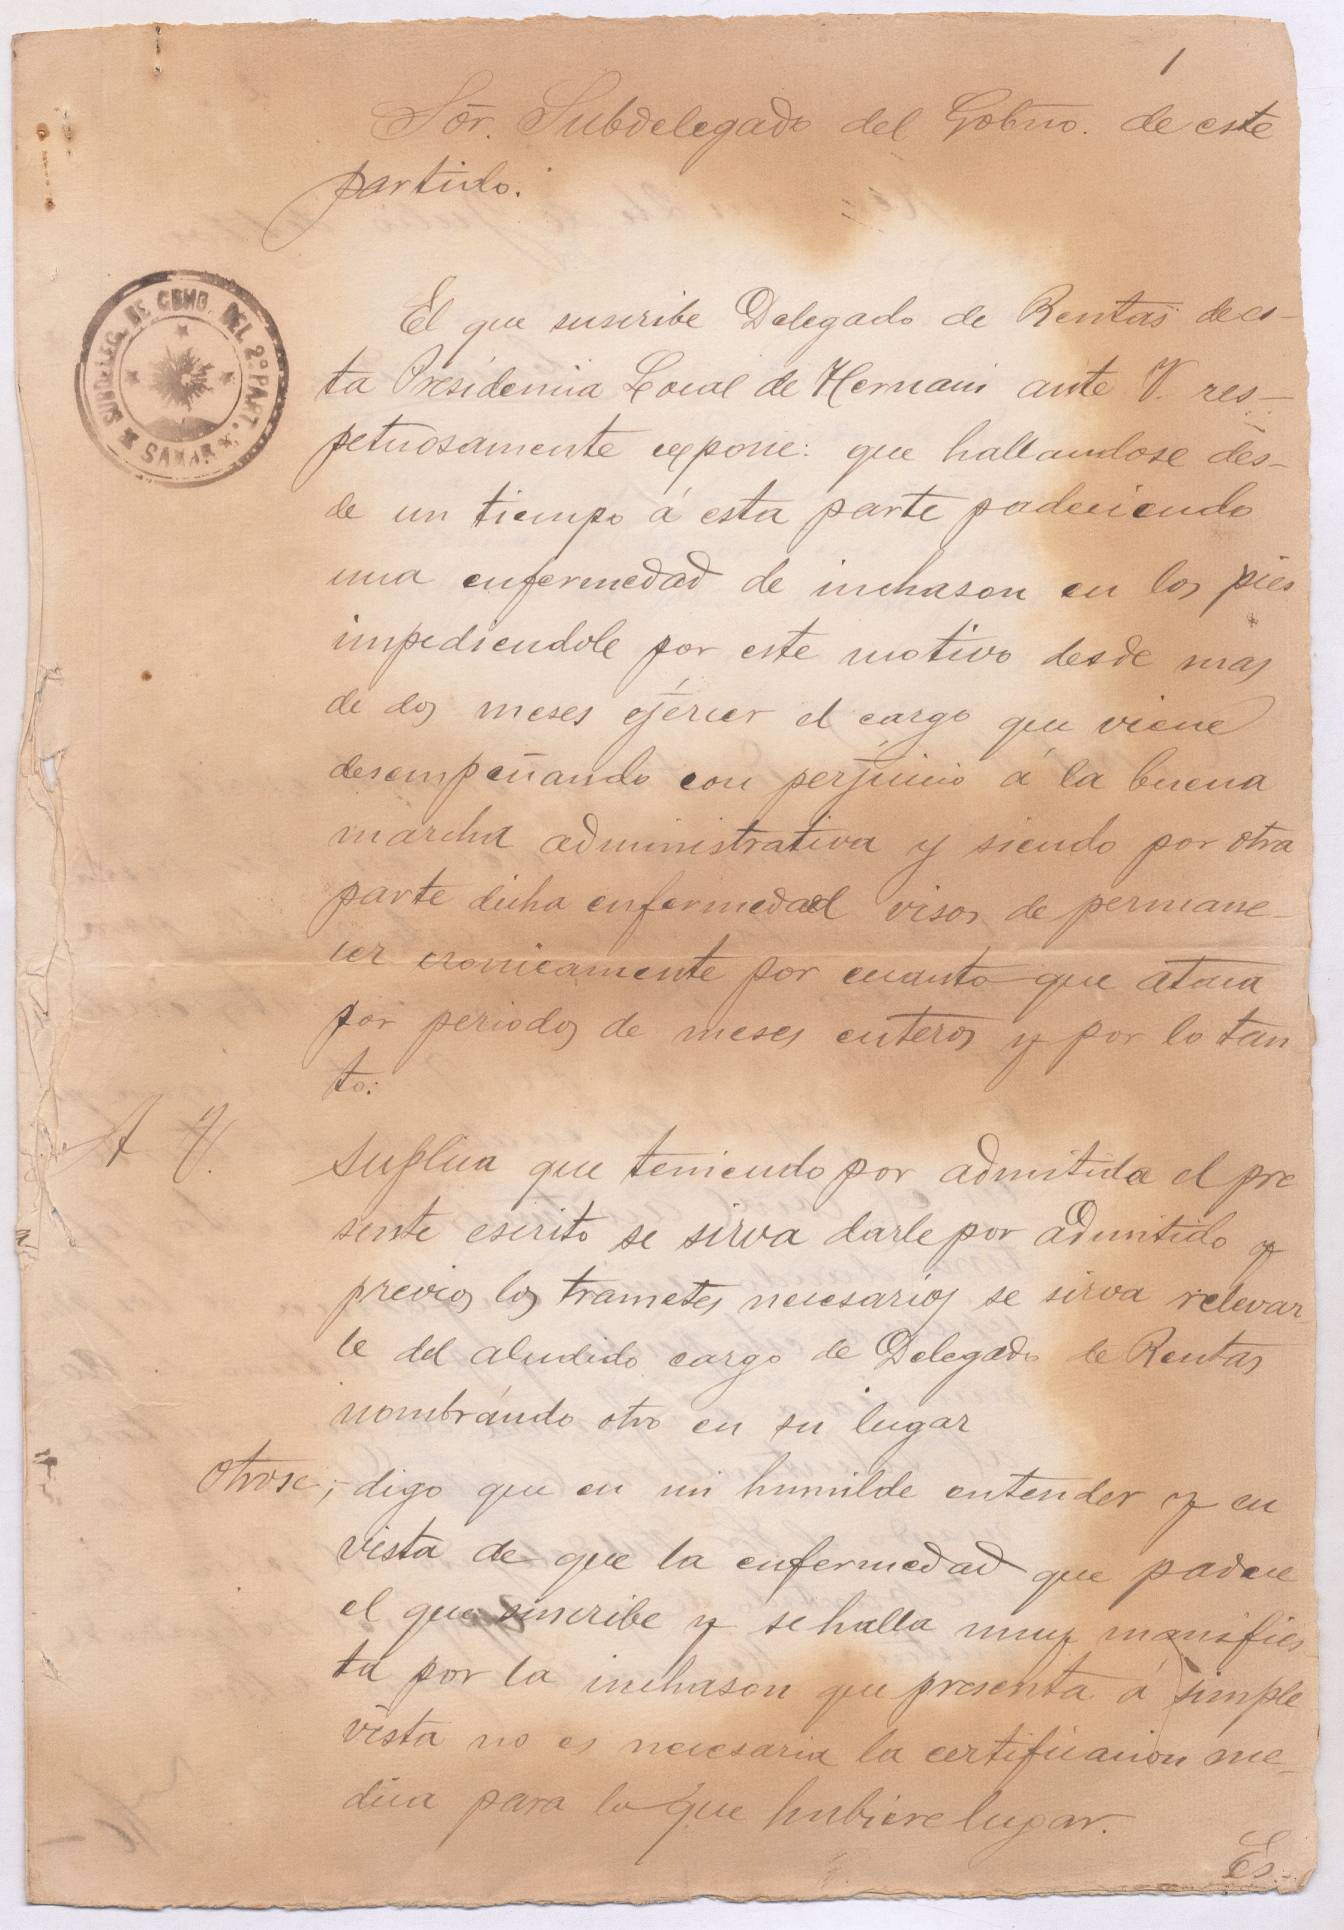 1
Sõr. Subdelegado del Gobno. de este
partido.
SUBDELEG. DE GBNO. DEL 2º PART.
SAMAR
El que suscribe Delegado de Rentas de es-
ta Presidencia Local de Hernani ante V. res-
petuosamente expone: que hallandose des-
de un tiempo á esta parte padeciendo
una enfermedad de inchason en los pies
impediendole por este motivo desde mas
de dos meses ejercer el cargo que viene
desempeñando con perjuicio á la buena
marcha administrativa y siendo por otra
parte dicha enfermedad visos de permane-
cer cronicamente por cuanto que ataca
por periodos de meses enteros y por lo tan
to:
A V. suplica que teniendo por admitida el pre
sente escrito se sirva darle por admitido y
previos los trametes necesarios se sirva relevar-
le del aludido cargo de Delegado de Rentas
nombrándo otro en su lugar
Otrosi;- digo que en mi humilde entender y en
vista de que la enfermedad que padece
el que suscribe y se halla muy manifies-
ta por la inchason que presenta á simple
vista no es necesaria la certificacion me-
dica para lo que hubiere lugar.
Es-